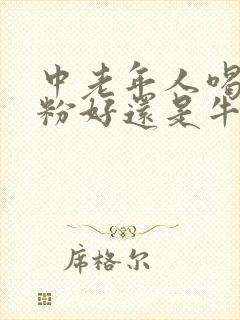 中老年人喝
粉好還是牛
席格尔